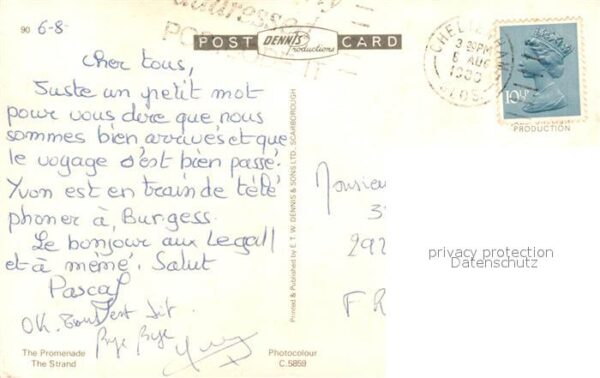 90 6-8-
addressed
POST DENNIS Productions CARD
CHELTENHAM
3 30PM
6 AUG
1980
GLOS
10½P
PRODUCTION
Cher tous,
Juste un petit mot
pour vous dire que nous
sommes bien arrivés et que
le voyage s'est bien passé.
Yvon est en train de télé
phoner à, Burgess.
Le bonjour aux Legall
et à mémé. Salut
Pascal
OK. Tout est dit
Bye Bye
Yvon
Printed & Published by E. T. W. DENNIS & SONS LTD., SCARBOROUGH
Monsieur
292
FR
privacy protection
Datenschutz
The Promenade
The Strand
Photocolour
C.5859